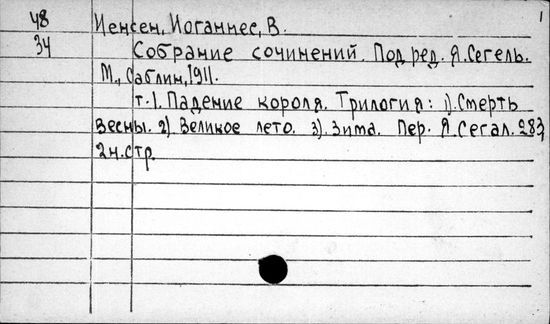 48 Иенсен, Иоганнес, В. 1
34 Собрание сочинений. Под ред. Я.Сегель.
М., Саблин, 1911.
т.1. Падение короля. Трилогия: 1). Смерть
весны. 2) Великое лето. 3). Зима. Пер. Я.Сегал. 283,
2н.стр.